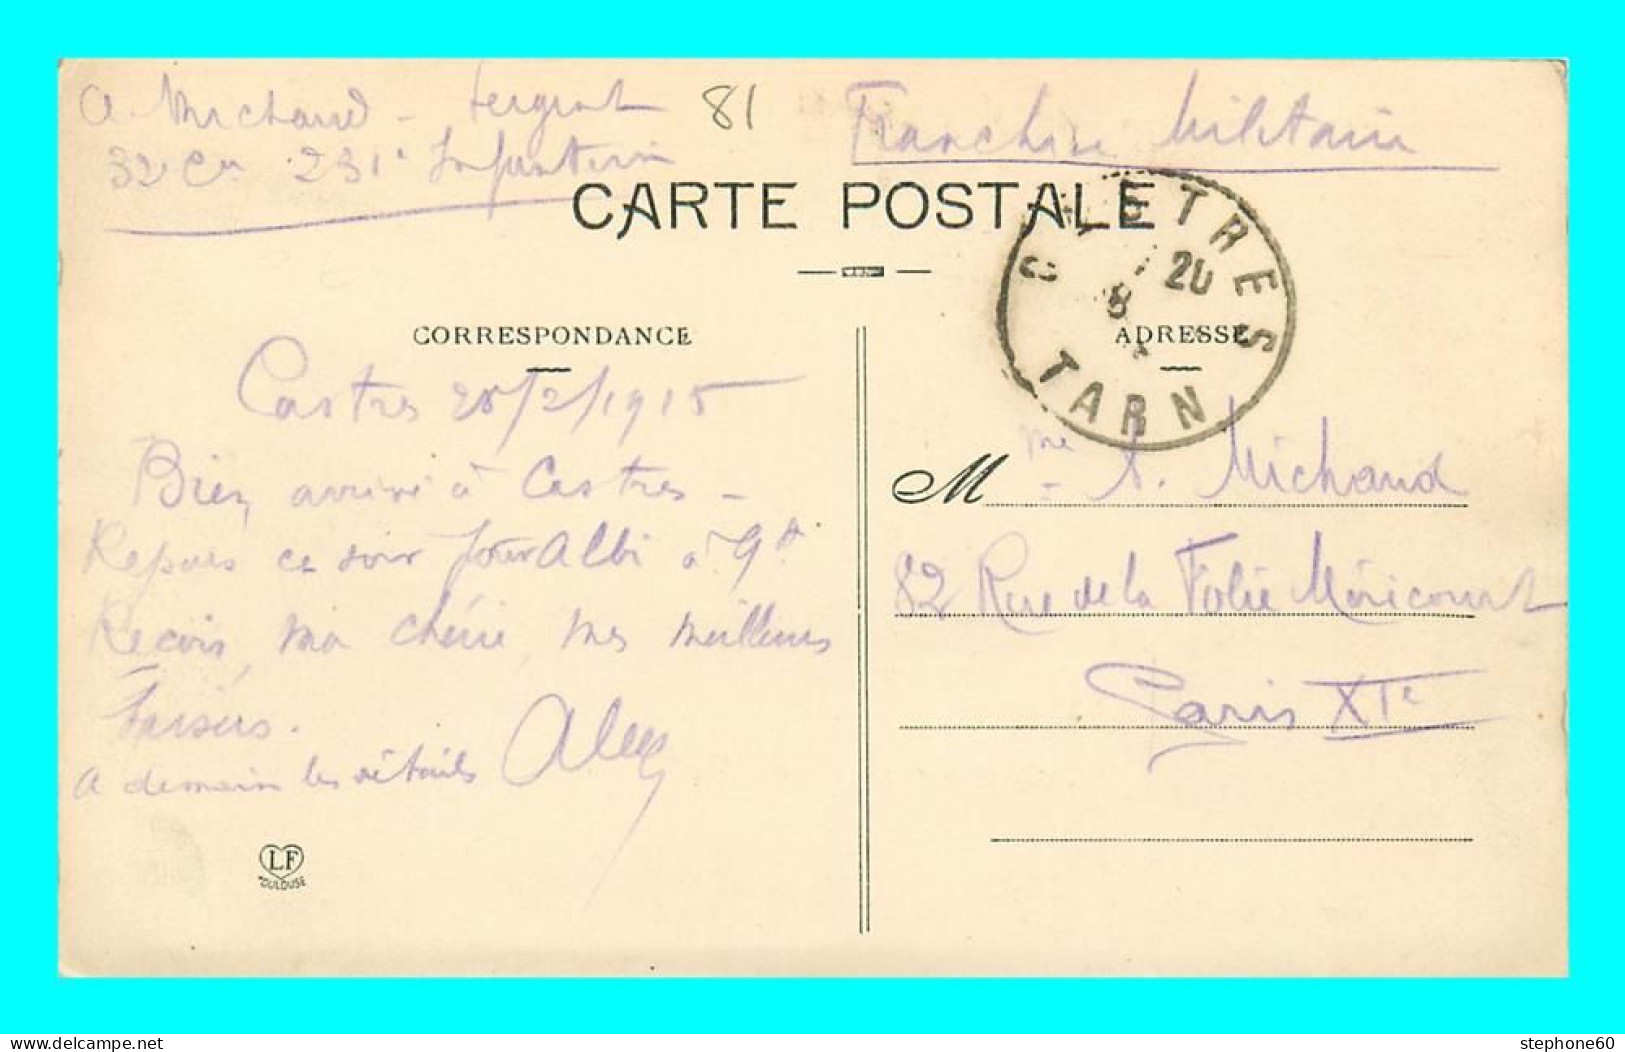 A Michaud - Sergent
32e Cie 231e Infanterie
81
Franchise Militaire
CARTE POSTALE
CASTRES
20
8
TARN
CORRESPONDANCE
ADRESSE
Castres 28/2/1915
Bien arrivé à Castres -
Repars ce soir pour Albi à 9h
Reçois, ma chérie, mes meilleurs
baisers.
A demain les détails
Mme A. Michaud
82 Rue de la Folie Méricourt
Paris XIe
LF
TOULOUSE
stephone60